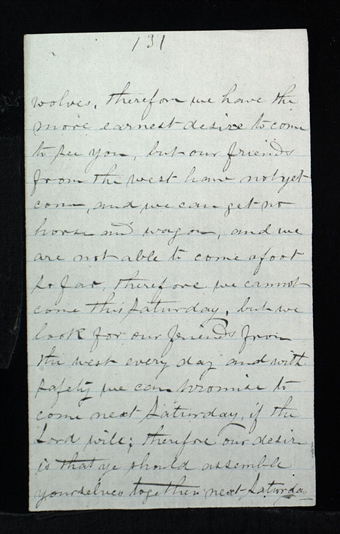 131
wolves, therefore we have the
more earnest desire to come
to see you, but our friends
from the west have not yet
come, and we can get no
horse and wagon, and we
are not able to come afoot
so far, therefore we cannot
come this Saturday, but we
look for our friends from
the west every day and with
safety we can promise to
come next Saturday, if the
Lord will; therefore our desire
is that ye should assemble
yourselves together next Saturda